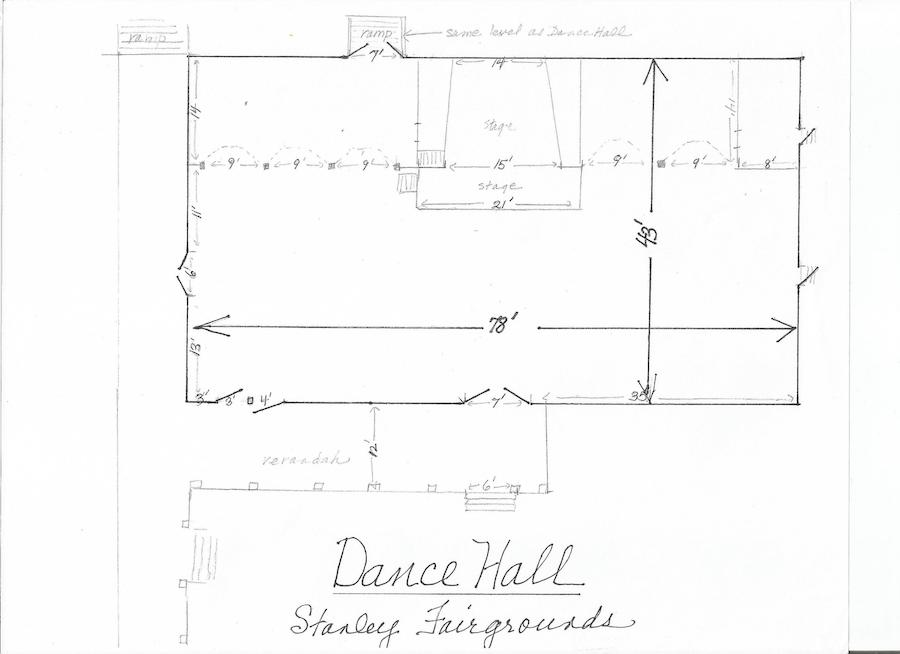 ramp
ramp
same level as Dance Hall
7'
14'
14
14'
stage
9'
9'
9'
15'
9'
9'
8'
stage
21'
11'
43'
6'
78'
13'
3'
3'
4'
7'
35'
12'
verandah
6'
Dance Hall
Stanley Fairgrounds